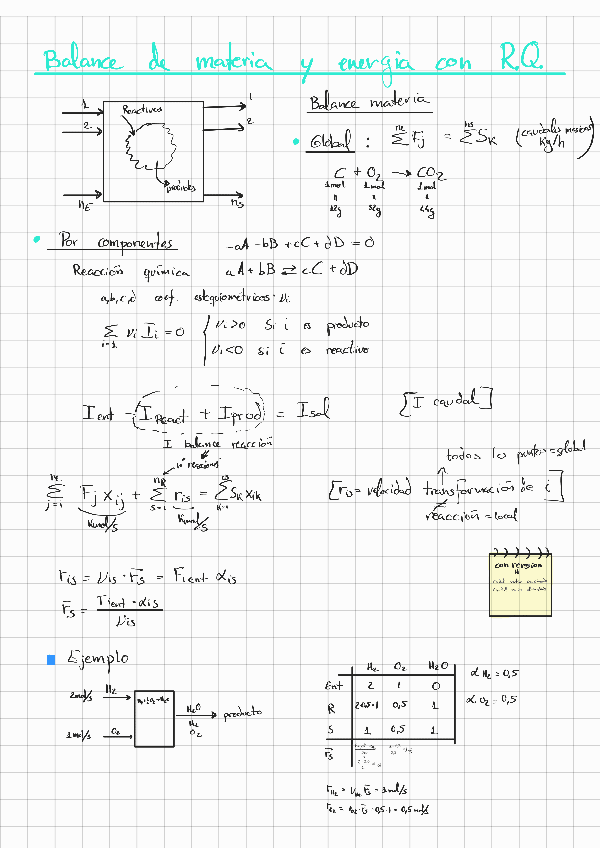 Balance de materia y energía con R.Q.
1
2
nE
Reactivos
productos
1
2
ns
Balance materia
Global : Σ Fj = Σ Sk (caudales másicos) Kg/h
C + O2 → CO2
1mol 1mol 1mol
12g 32g 44g
Por componentes
-aA -bB + cC + dD = 0
Reacción química aA + bB ⇄ cC + dD
a,b,c,d coef. estequiométricos: νi
Σ νi Ii = 0
νi>0 si i es producto
νi<0 si i es reactivo
Ient - I React + I prod = I sal
[I caudal]
I balance reacción
nº reacciones
Σ Fj xij + Σ ris = Σ Sk xik
Kmol/s
Kmol/s
todos los puntos = global
[ris = velocidad transformación de i]
reacción = local
ris = νis · rs = Fient αis
rs = Fient · αis / νis
conversion
Ejemplo
2mol/s H2
1mol/s O2
H2O
H2
O2
producto
H2 O2 H2O
Ent 2 1 0
R 2·0.5=1 0,5 1
S 1 0,5 1
rs
α H2 = 0,5
α O2 = 0,5